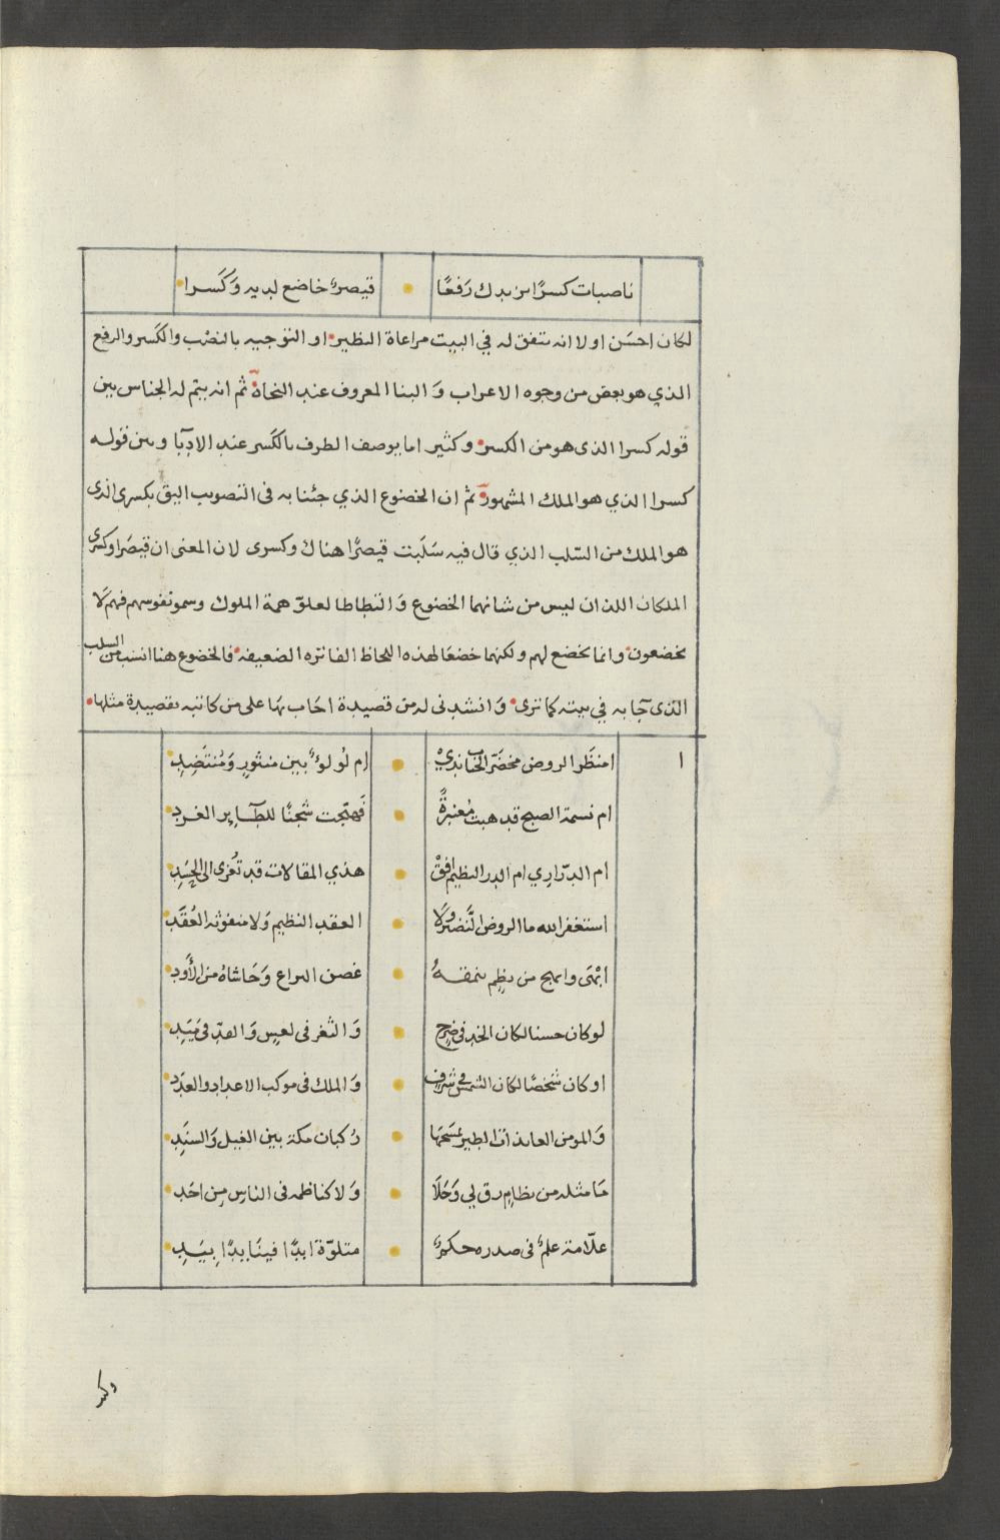 ناصبات كسرًا نريدك رَفعًا • قيصرٌ خاضع لديه وَكَسرا •
لكان احسَن اولا انه يتفق له في البيت مراعاة النظير • او التوجيه بالنصْب والكَسر والرفع
الذي هو بعض من وجوه الاعراب وَالبنا المعروف عند النحاة • ثم انه يتم له الجناس بين
قوله كسرا الذى هو من الكسر • وكثير اما يوصف الطرف بالكَسر عند الادبآ وبين قوله
كسرا الذي هو الملك المشهور • ثم ان الخضوع الذي جئنا به فى التصويب اليق بكسرى الذى
هو الملك من السّلب الذي قال فيه سَلَبت قيصرًا هناك وكسرى لان المعنى ان قيصَرا وكسرى
الملكان اللذان ليس من شانهما الخضوع وَالتطاطا لعلوّ همة الملوك وسمو نفوسهم فهم لَا
يخضعون • وانما يخضع لهم ولكنهما خضعَا لهذه اللحاظ الفاتره الضعيفه • فالخضوع هنا انسَب من السلب
الذى جآ به في بيته كما ترى • وَانشدنى له من قصيدة اجَاب بهَا على من كاتبه بقصيدة مثلها •
ا امنظَر الروض مخضَرّ الجَناب ندِيْ • ام لُولوءٌ بين منثورٍ وَمُنتَضِدِ •
ام نسمة الصبح قد هبت مُعنبرةً • فَهيّجت شَجنًا للطآيرِ الغردِ •
ام الدّرارِي ام الدر النظيم افقْ • هذي المقالات قد تُعزى الى الحَسَدِ •
استغفر الله ما الروض النّضرُ وَلَا • العقد النظيم وَلا منفوثة العُقَد •
ابْهَى وابهج من نظِم ينمقهُ • غصن اليراع وَحَاشاهُ من الأَود •
لو كان حسنا لكان الخد في ضرج • وَالثغر فى لعسٍ وَالقدّ فى مَيَدِ •
او كان شخصًا لكان الشمس فى شرف • وَالملك فى موكب الاعداد والعدَد •
وَالمومن العائذات الطير يمسَحهَا • رُكبان مكة بين الغيل وَالسنَدِ •
مَا مثله من نظامٍ رق لي وَحَلَا • وَلا كناظمه فى الناسِ من احَد •
علّامة علمٌ فى صدره حكمٌ • متلوّة ابدًا فينَا يدًا بيَدِ •